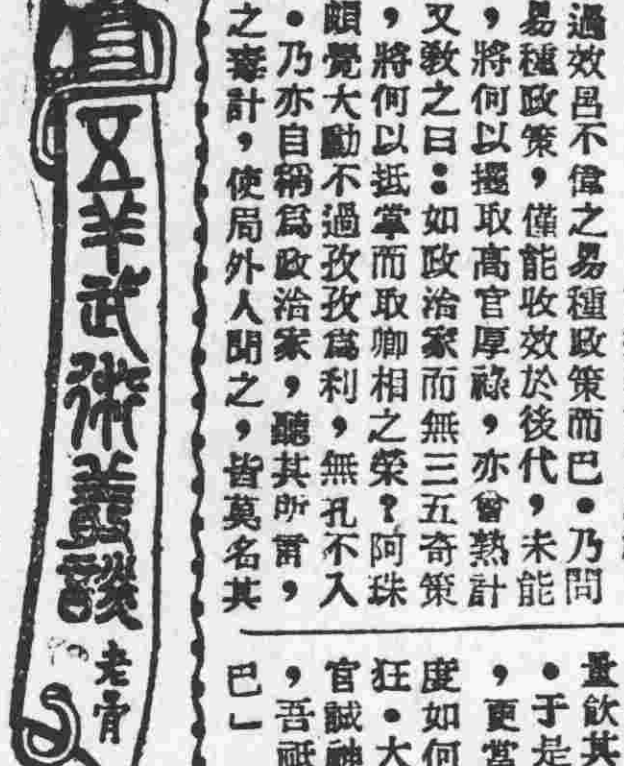 過效呂不偉之易種政策而巳・乃問
易種政策，僅能收效於後代，未能
，將何以攫取高官厚祿，亦曾熟計
又敎之曰：如政治家而無三五奇策
，將何以抵掌而取卿相之榮？阿珠
頗覺大勳不過孜孜爲利，無孔不入
・乃亦自稱爲政治家，聽其所言，
之毒計，使局外人聞之，皆莫名其
量飲其
・于是
，更當
度如何
狂・大
官誠神
，吾祇
巴」
五羊武術叢談
老霄